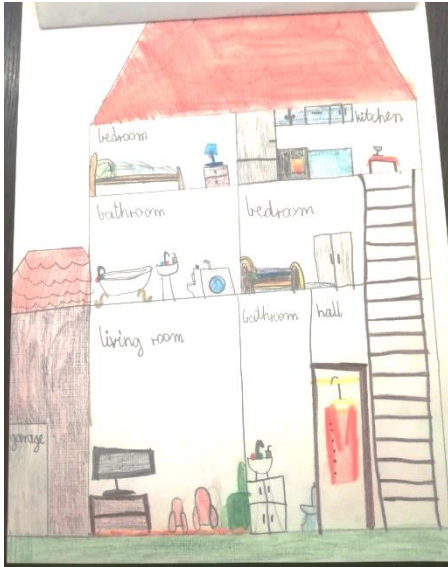 bedroom
kitchen
bathroom
bedroom
living room
bathroom
hall
garage